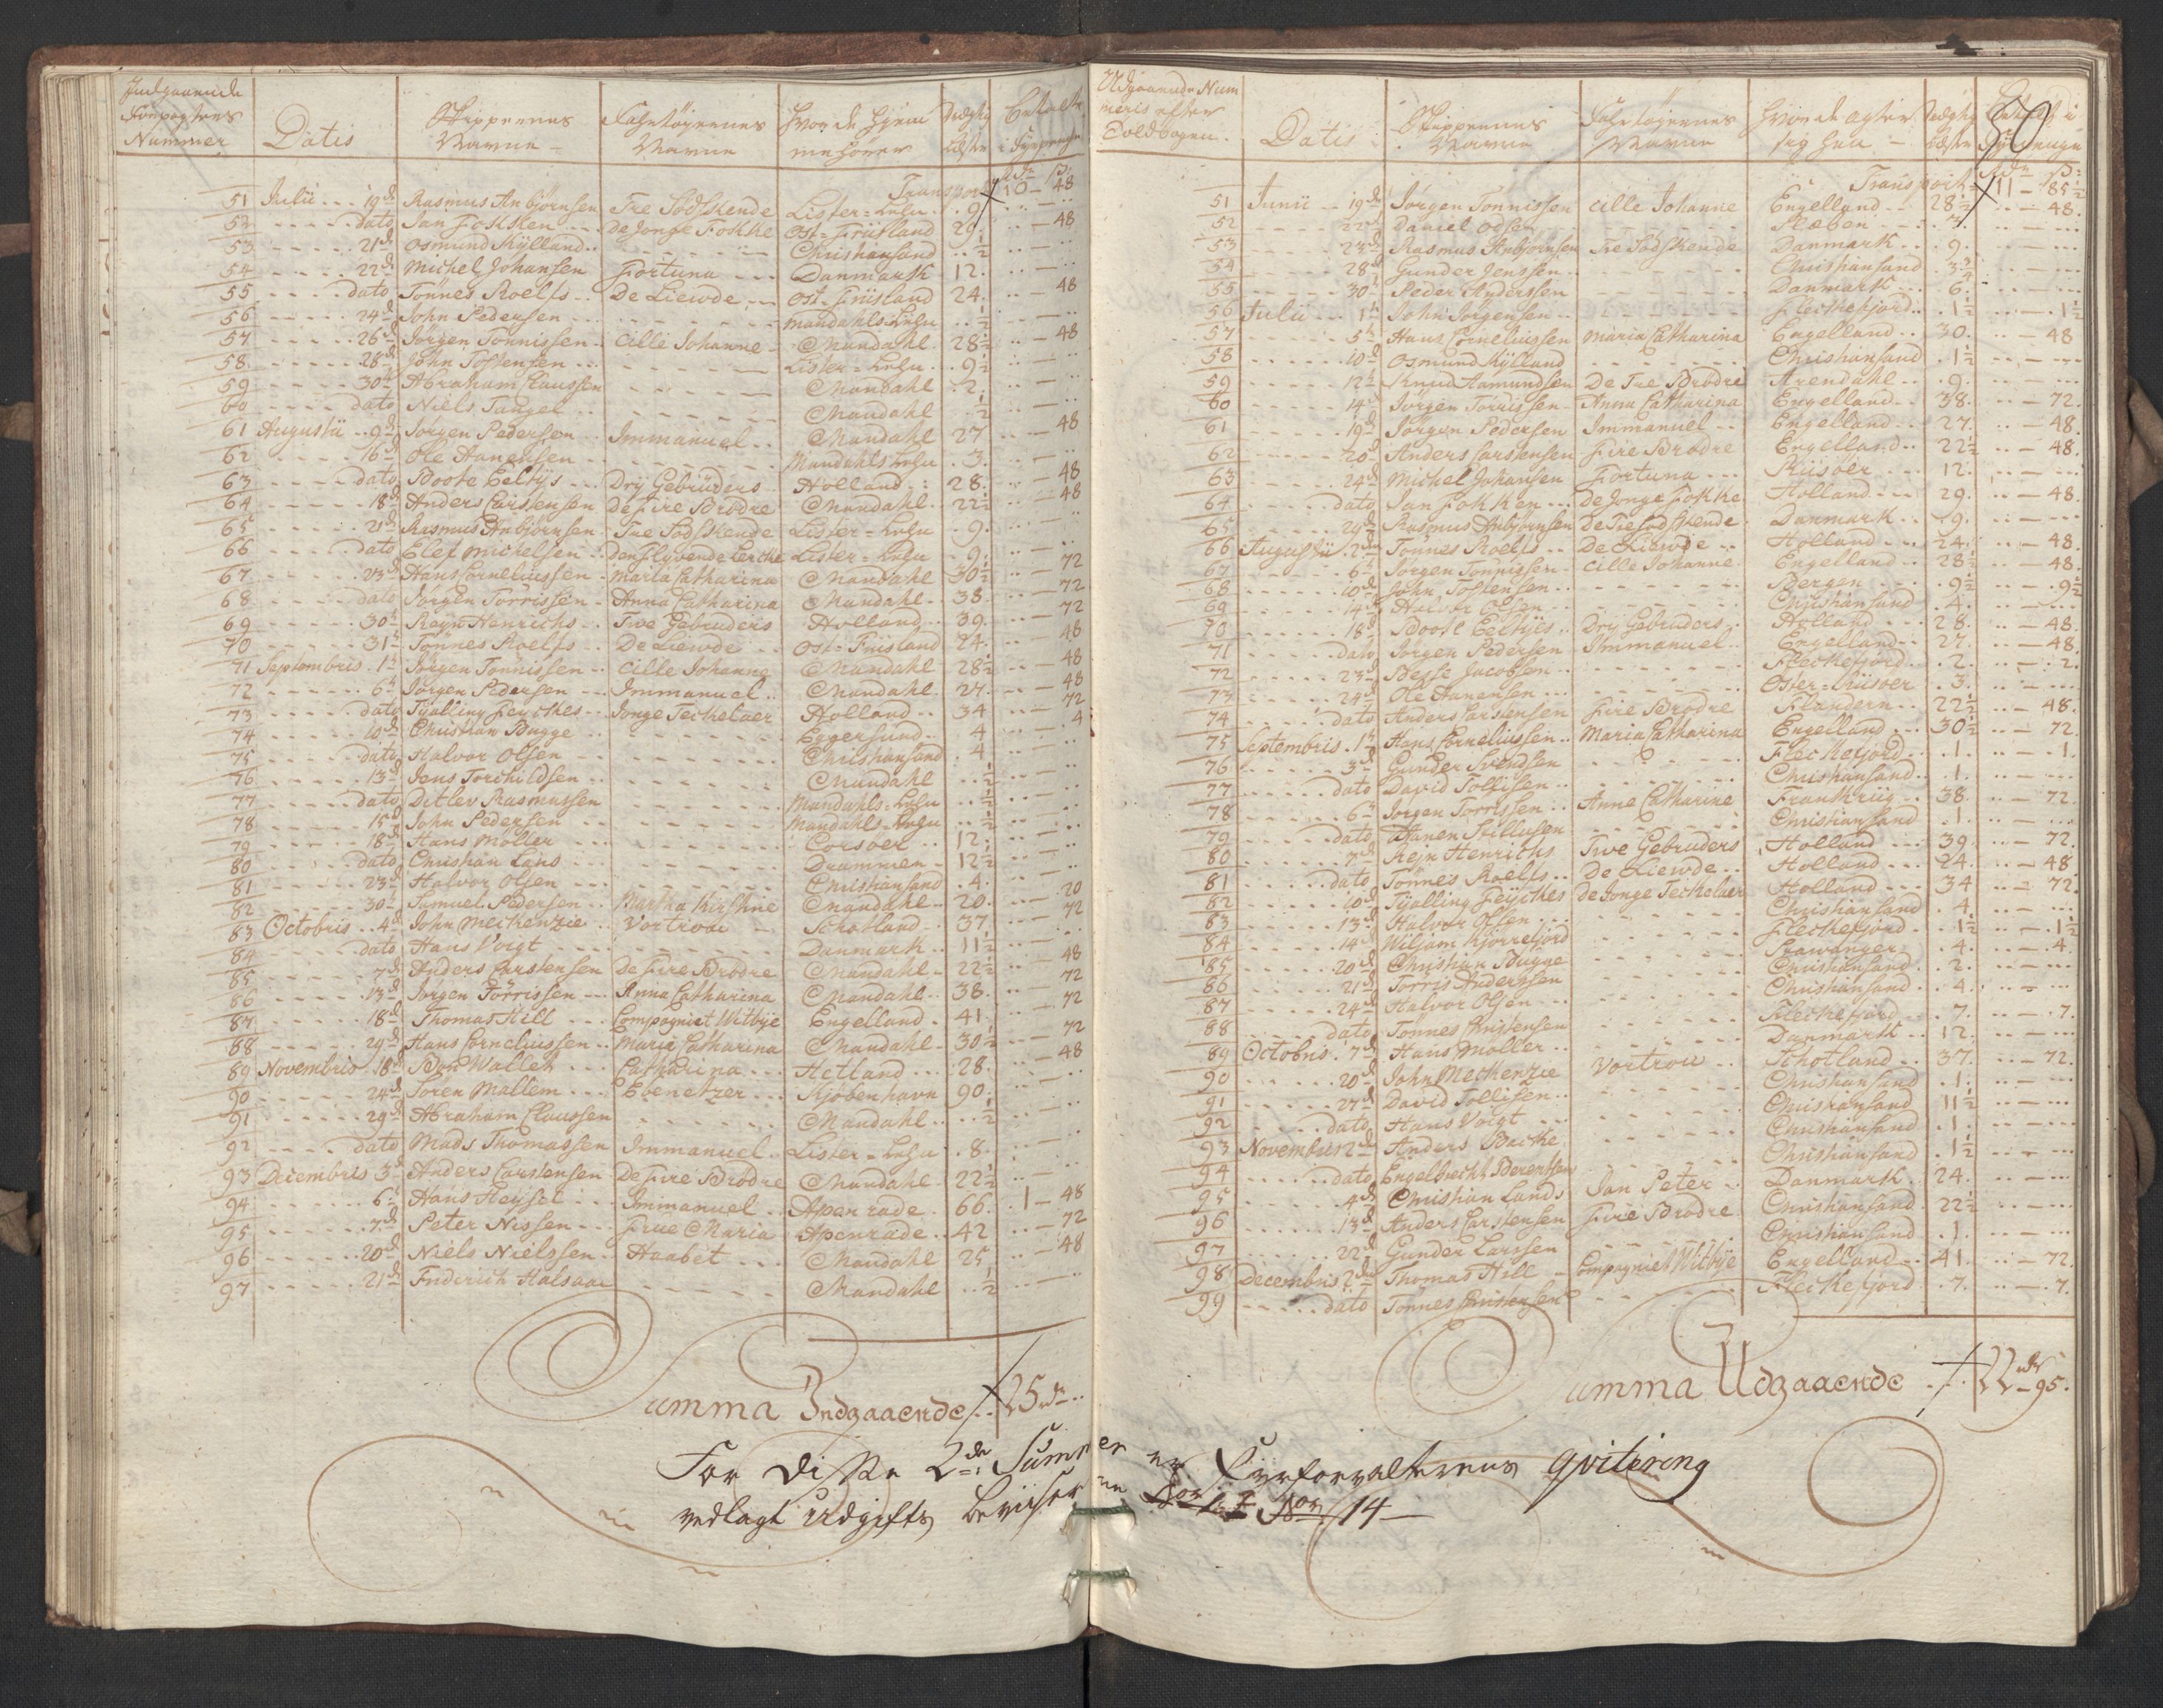 Indgaaende
Nummer
Datis
Skippernes
Navne
Fahrtøyernes
Navne
Hvor de hjem
mehörer
Transport 10 - 48
51 Julii 19d Rasmus Anbjörnsen Tre Södskende Lister-Lehn 9
52 dato Jan Fokken De Jonge Fokke Ost-Friisland 29 48
53 21d Osmund Kylland Christiansand ½
54 22d Michel Johansen Fortuna Danmark 12
55 dato Tönnes Roelfs De Liewde Ost-Friisland 24 48
56 24d John Pedersen Mandahls Lehn ½
57 26d Jørgen Tönnissen Cille Johanne Mandahl 28½ 48
58 28d John Tostensen Lister-Lehn 9½
59 30te Abraham Claussen Mandahl 2
60 dato Niels Tangel Mandahl ½
61 Augustii 9d Jørgen Pedersen Immanuel Mandahl 27 48
62 16d Ole Hanensen Mandahls Lehn 3
63 dato Boote Eeltjs Drij Gebrüders Holland 28 48
64 18d Anders Carstensen De Fire Brödre Mandahl 22½ 48
65 21d Rasmus Anbjörnsen Tre Södskende Lister-Lehn 9
66 dato Elef Michelsen Den Flyvende Lerche Lister-Lehn 9
67 23d Hans Corneliussen Maria Catharina Mandahl 30½ 72
68 dato Jørgen Törrissen Anna Catharina Mandahl 38 72
69 30t Rejn Henrichs Twe Gebruders Holland 39 72
70 31t Tönnes Roelfs De Liewde Ost-Friisland 24 48
71 Septembris 1t Jørgen Tönnissen Cille Johanne Mandahl 28½ 48
72 6t Jørgen Pedersen Immanuel Mandahl 27 48
73 dato Tjalling Feyckes Jonge Teekelaer Holland 34 72
74 10d Christian Bugge Eggersund 4 4
75 dato Halvor Olsen Christiansand 4
76 13d Jens Torchildsen Mandahl ½
77 dato Ditlev Rasmussen Mandahls-Lehn ½
78 15d John Pedersen Mandahls-Lehn ½
79 18d Hans Möller Corsöer 12
80 dato Christian Lans Drammen 12½
81 23d Halvor Olsen Christiansand 4
82 30t Samuel Pedersen Martha Kirstine Mandahl 20 20
83 Octobris 4d John Mechenzie Vortrou Schotland 37 72
84 dato Hans Voigt Danmark 11½
85 7d Anders Carstensen De Fire Brödre Mandahl 22½ 48
86 13d Jørgen Törrissen Anna Catharina Mandahl 38 72
87 18d Thomas Hill Compagniet Witbye Engelland 41 72
88 29d Hans Corneliussen Maria Catharina Mandahl 30½ 72
89 Novembris 18d Catharina Hetland 28 48
90 24d Sören Mallem Ebenetzer Kjöbenhavn 90
91 29d Abraham Claussen Mandahl ½
92 dato Mads Thomassen Immanuel Lister-Lehn 8
93 Decembris 3d Anders Carstensen De Fire Brödre Mandahl 22½
94 6t Hans Heysel Immanuel Apenrade 66 1 - 48
95 7d Peter Nissen Frue Maria Apenrade 42 72
96 20d Niels Nielssen Haabet Mandahl 25 48
97 21d Friderich Halsaae Mandahl ½
Summa Indgaaende 25
For disse 2de Summer er Fyrforvalterens qvitering
vedlagt Udgifts Beviiser
Udgaaende Num
meris efter
Toldbogen
Datis
Skippernes
Navne
Fahrtøyernes
Navne
Hvor de agter
sig hen
50
Transport 11 - 85½
51 Junii 19d Jørgen Tönnissen Cille Johanne Engelland 28½ 48
52 22d Daniel Odsen
53 23d Rasmus Anbjörnsen Tre Södskende Danmark 9
54 28d Gunder Jenssen Christiansand 3¾
55 30t Peder Anderssen Danmark 6
56 Julii 1t John Jørgensen Fleckefjord 1½ 1½
57 5t Hans Corneliussen Maria Catharina Engelland 30 48
58 10d Osmund Kylland Christiansand 1½
59 12t Knud Aamundsen De Tre Brödre Arendahl 9
60 14d Jørgen Törrissen Anna Catharina Engelland 38 72
61 19d Jørgen Pedersen Immanuel Engelland 27 48
62 20d Anders Carstensen Fire Brödre Engelland 22½ 48
63 24d Michel Johansen Fortuna Riisöer 12
64 dato Jan Fokken De Jonge Fokke Holland 29 48
65 29d Rasmus Anbjörnsen De Tre Södskende Danmark 9
66 Augustii 2den Tönnes Roelfs De Liewde Holland 24 48
67 6t Jørgen Tönnissen Cille Johanne Engelland 28½ 48
68 10d John Tostensen Bergen 9½ 9½
69 14d Halvor Olsen Christiansand 4
70 18d Boote Eeltjes Drij Gebruders Holland 28 48
71 dato Jørgen Pedersen Immanuel Engelland 27 48
72 23d Jacobsen Fleckefjord 2 2
73 24d Ole Hanensen Oster-Riisöer 3
74 dato Anders Carstensen Fire Brödre Flandern 22½ 48
75 Septembris 1t Hans Corneliussen Maria Catharina Engelland 30½ 72
76 3d Gunder Svendsen Fleckefjord 1 1
77 dato David Tollisen Christiansand 1
78 6t Jørgen Torrissen Anne Catharine Frankriig 38 72
79 dato Hanen Tellusen Christiansand 1
80 7d Rejn Henrichs Twe Gebruders Holland 39 72
81 dato Tönnes Roelfs De Liewde Holland 24 48
82 10d Tjalling Feyckes De Jonge Teekelaer Holland 34 72
83 13d Halvor Olsen Christiansand 4
84 14d Wiljam Kjörrefjord Fleckefjord 1½ 1½
85 20d Christian Bugge Stawanger 4 4
86 21d Törris Anderssen Christiansand 2
87 24d Halvor Olsen Christiansand 4
88 dato Tönnes Christensen Fleckefjord 7 7
89 Octobris 7d Hans Möller Danmark 12
90 20d John Mechenzie Vortrou Schotland 37 72
91 27d David Tollisen Christiansand 1
92 dato Hans Voigt Christiansand 11½
93 Novembris 2d Anders Christiansand 1
94 dato Engelbrecht Berentsen Christiansand 1½
95 4d Christian Lands Jan Peter Danmark 24
96 13d Anders Carstensen Fire Brödre Christiansand 22½
97 22d Gunder Larssen Christiansand 1
98 Decembris 2den Thomas Hill Compagniet Witbye Engelland 41 72
99 dato Tönnes Christensen Fleckefjord 7 7
Summa Udgaaende 22 - 95
14